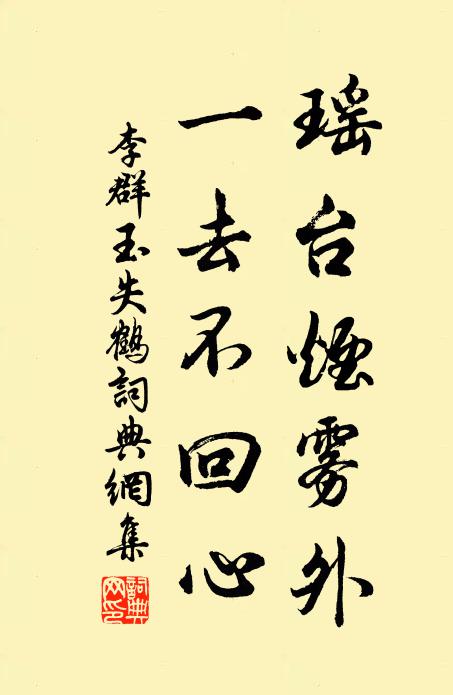 瑶台煙雾外
一去不回心
李群玉失鶴詞典網集
詞典网印